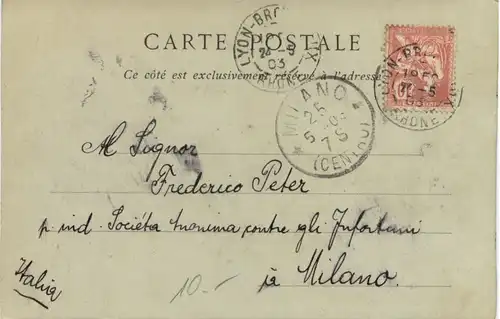 CARTE POSTALE
Ce côté est exclusivement réservé à l'adresse
LYON-BRO
RHONE
MILANO
25
5
7 S
(CENTRO)
LYON-BR
RHONE
Al Signor
Federico Peter
p. ind. Societá Anonima contro gli Infortuni
à Milano.
Italia
10.-